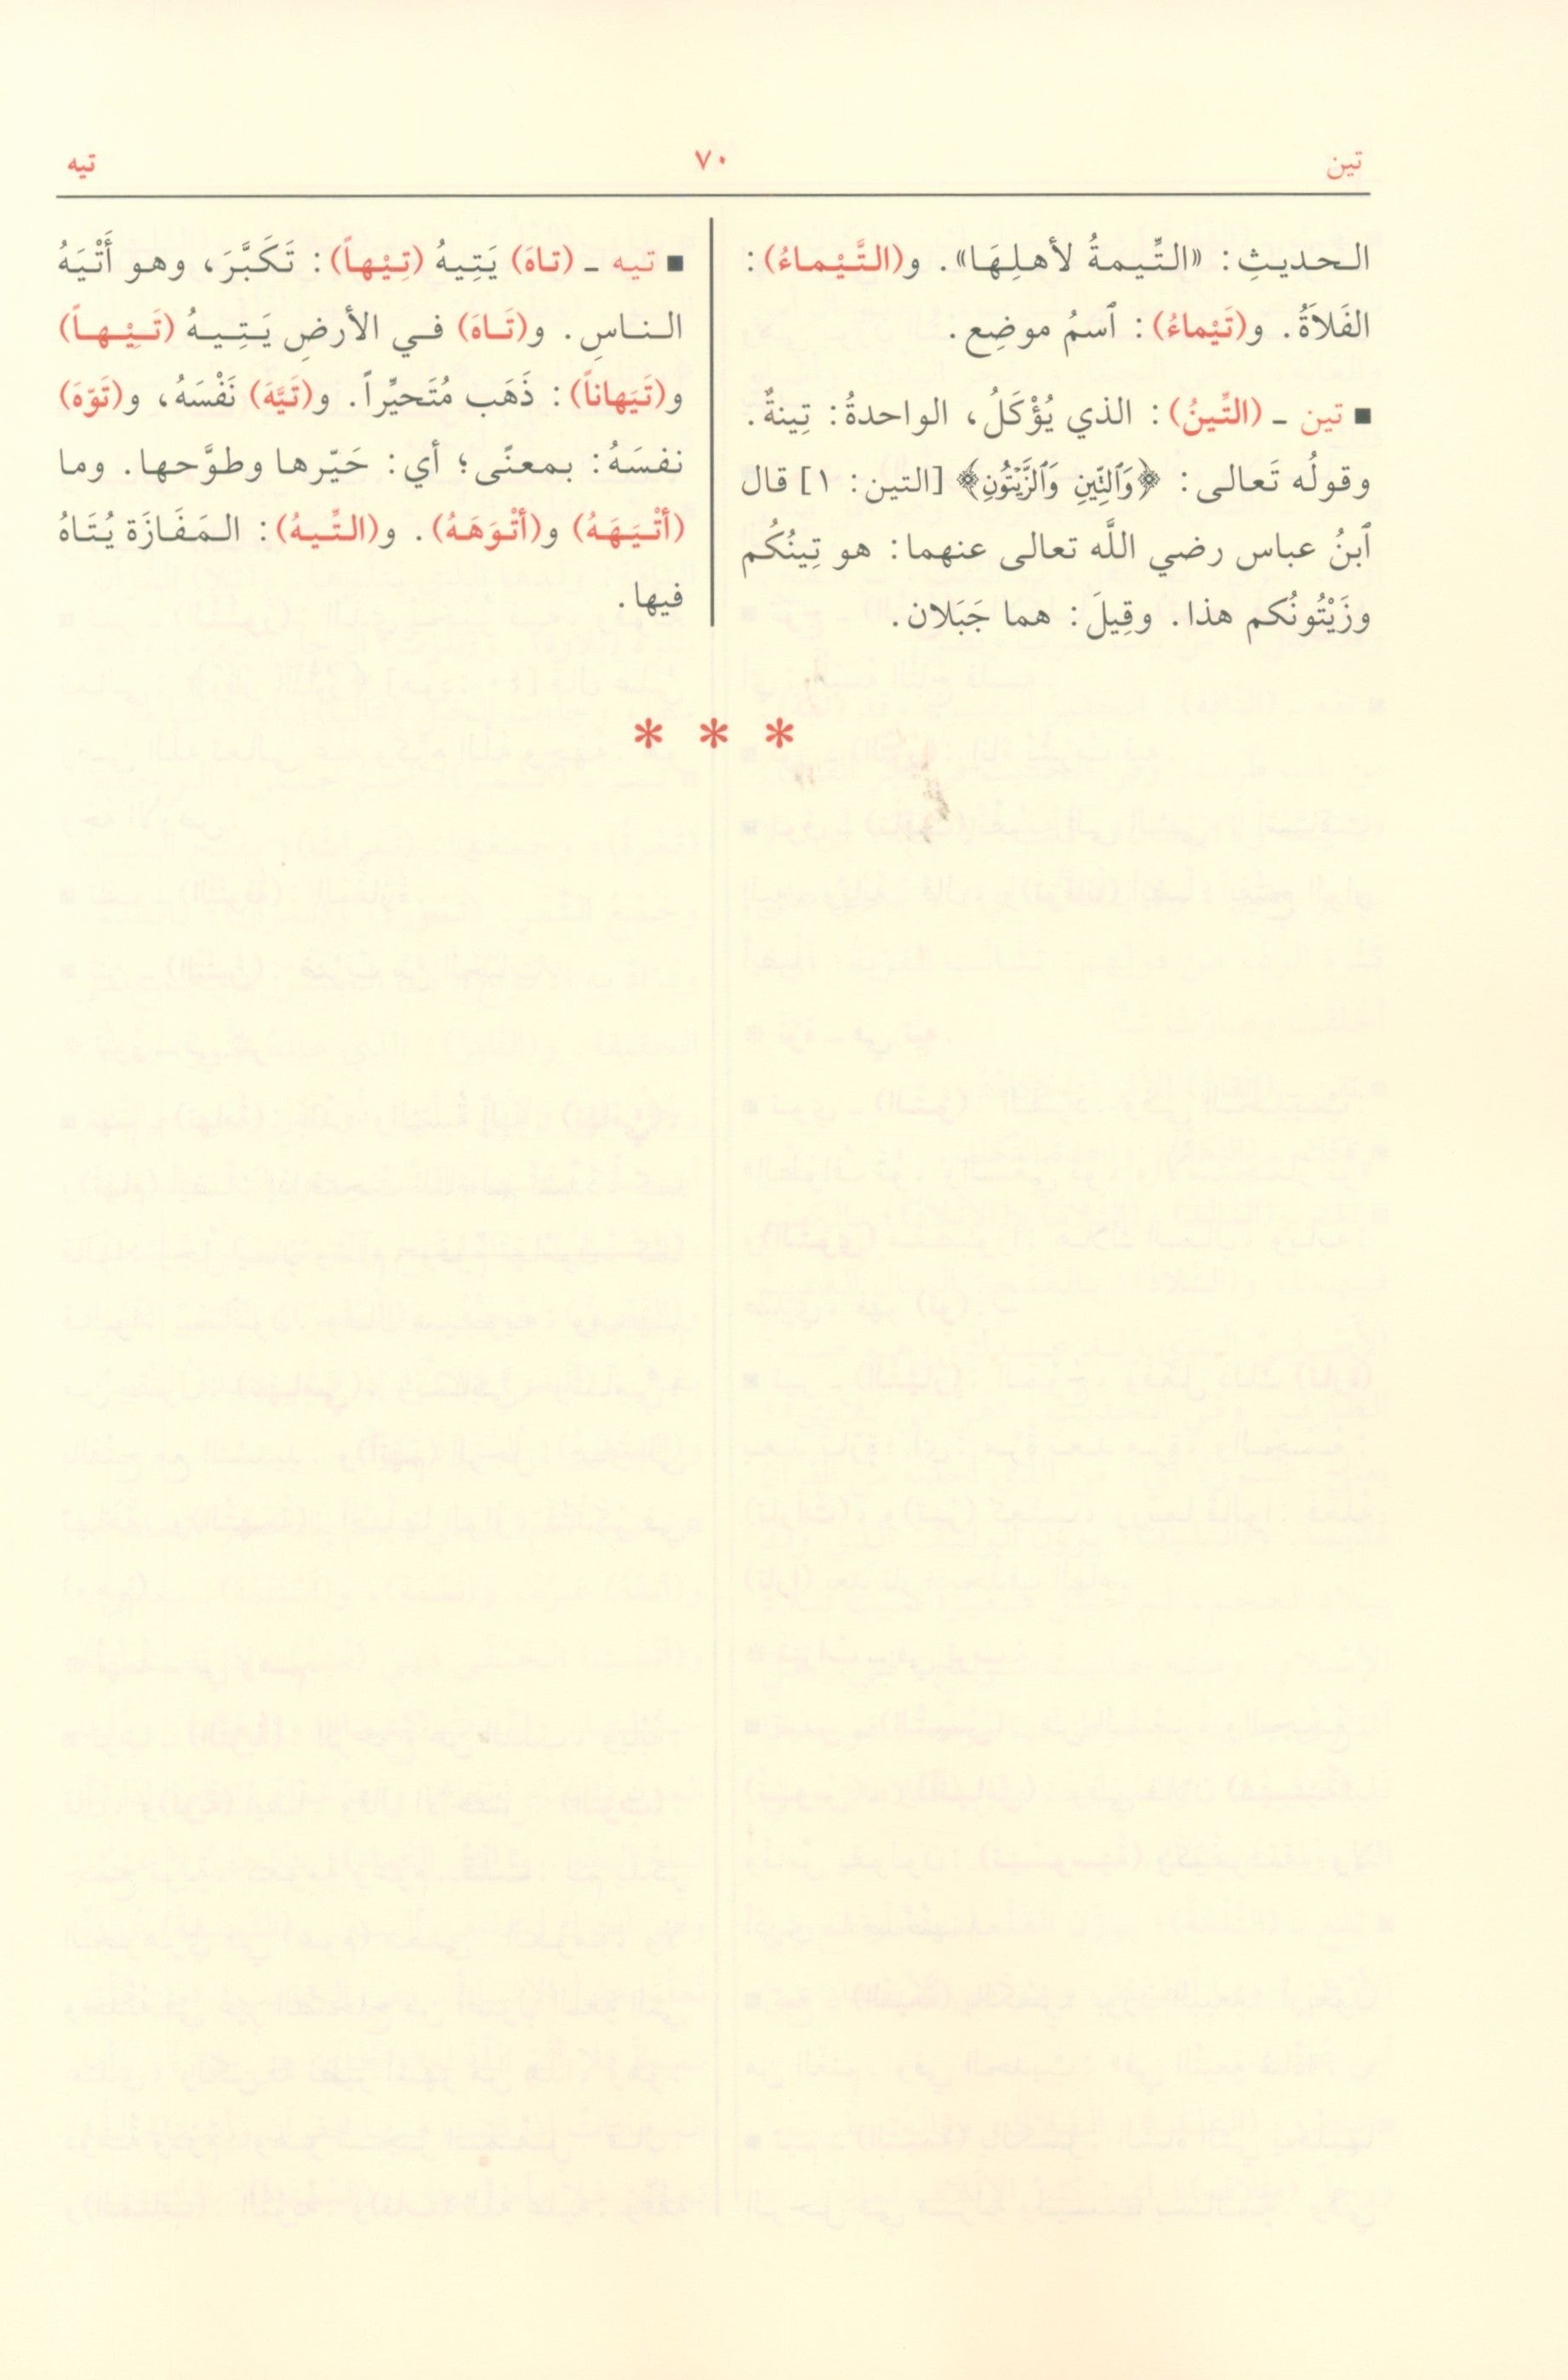 تين ٧٠ تيه
الحديثِ: «التِّيمةُ لأهلِهَا». و(التَّيْماءُ):
الفَلاَةُ. و(تَيْماءُ): ٱسمُ موضِع.
■ تين ـ (التِّينُ): الذي يُؤْكَلُ، الواحدةُ: تِينةٌ.
وقولُه تَعالى: ﴿وَٱلتِّينِ وَٱلزَّيْتُونِ﴾ [التين: ١] قال
ٱبنُ عباس رضي اللَّه تعالى عنهما: هو تِينُكُم
وزَيْتُونُكم هذا. وقِيلَ: هما جَبَلان.
■ تيه ـ (تاهَ) يَتِيهُ (تِيْهاً): تَكَبَّرَ، وهو أَتْيَهُ
الناسِ. و(تَاهَ) في الأرضِ يَتِيهُ (تَيْهاً)
و(تَيَهاناً): ذَهَب مُتَحيِّراً. و(تَيَّهَ) نَفْسَهُ، و(تَوّهَ)
نفسَهُ: بمعنًى؛ أي: حَيّرها وطوَّحها. وما
(أتْيَهَهُ) و(أتْوَهَهُ). و(التِّيهُ): المَفَازَة يُتَاهُ
فيها.
* * *